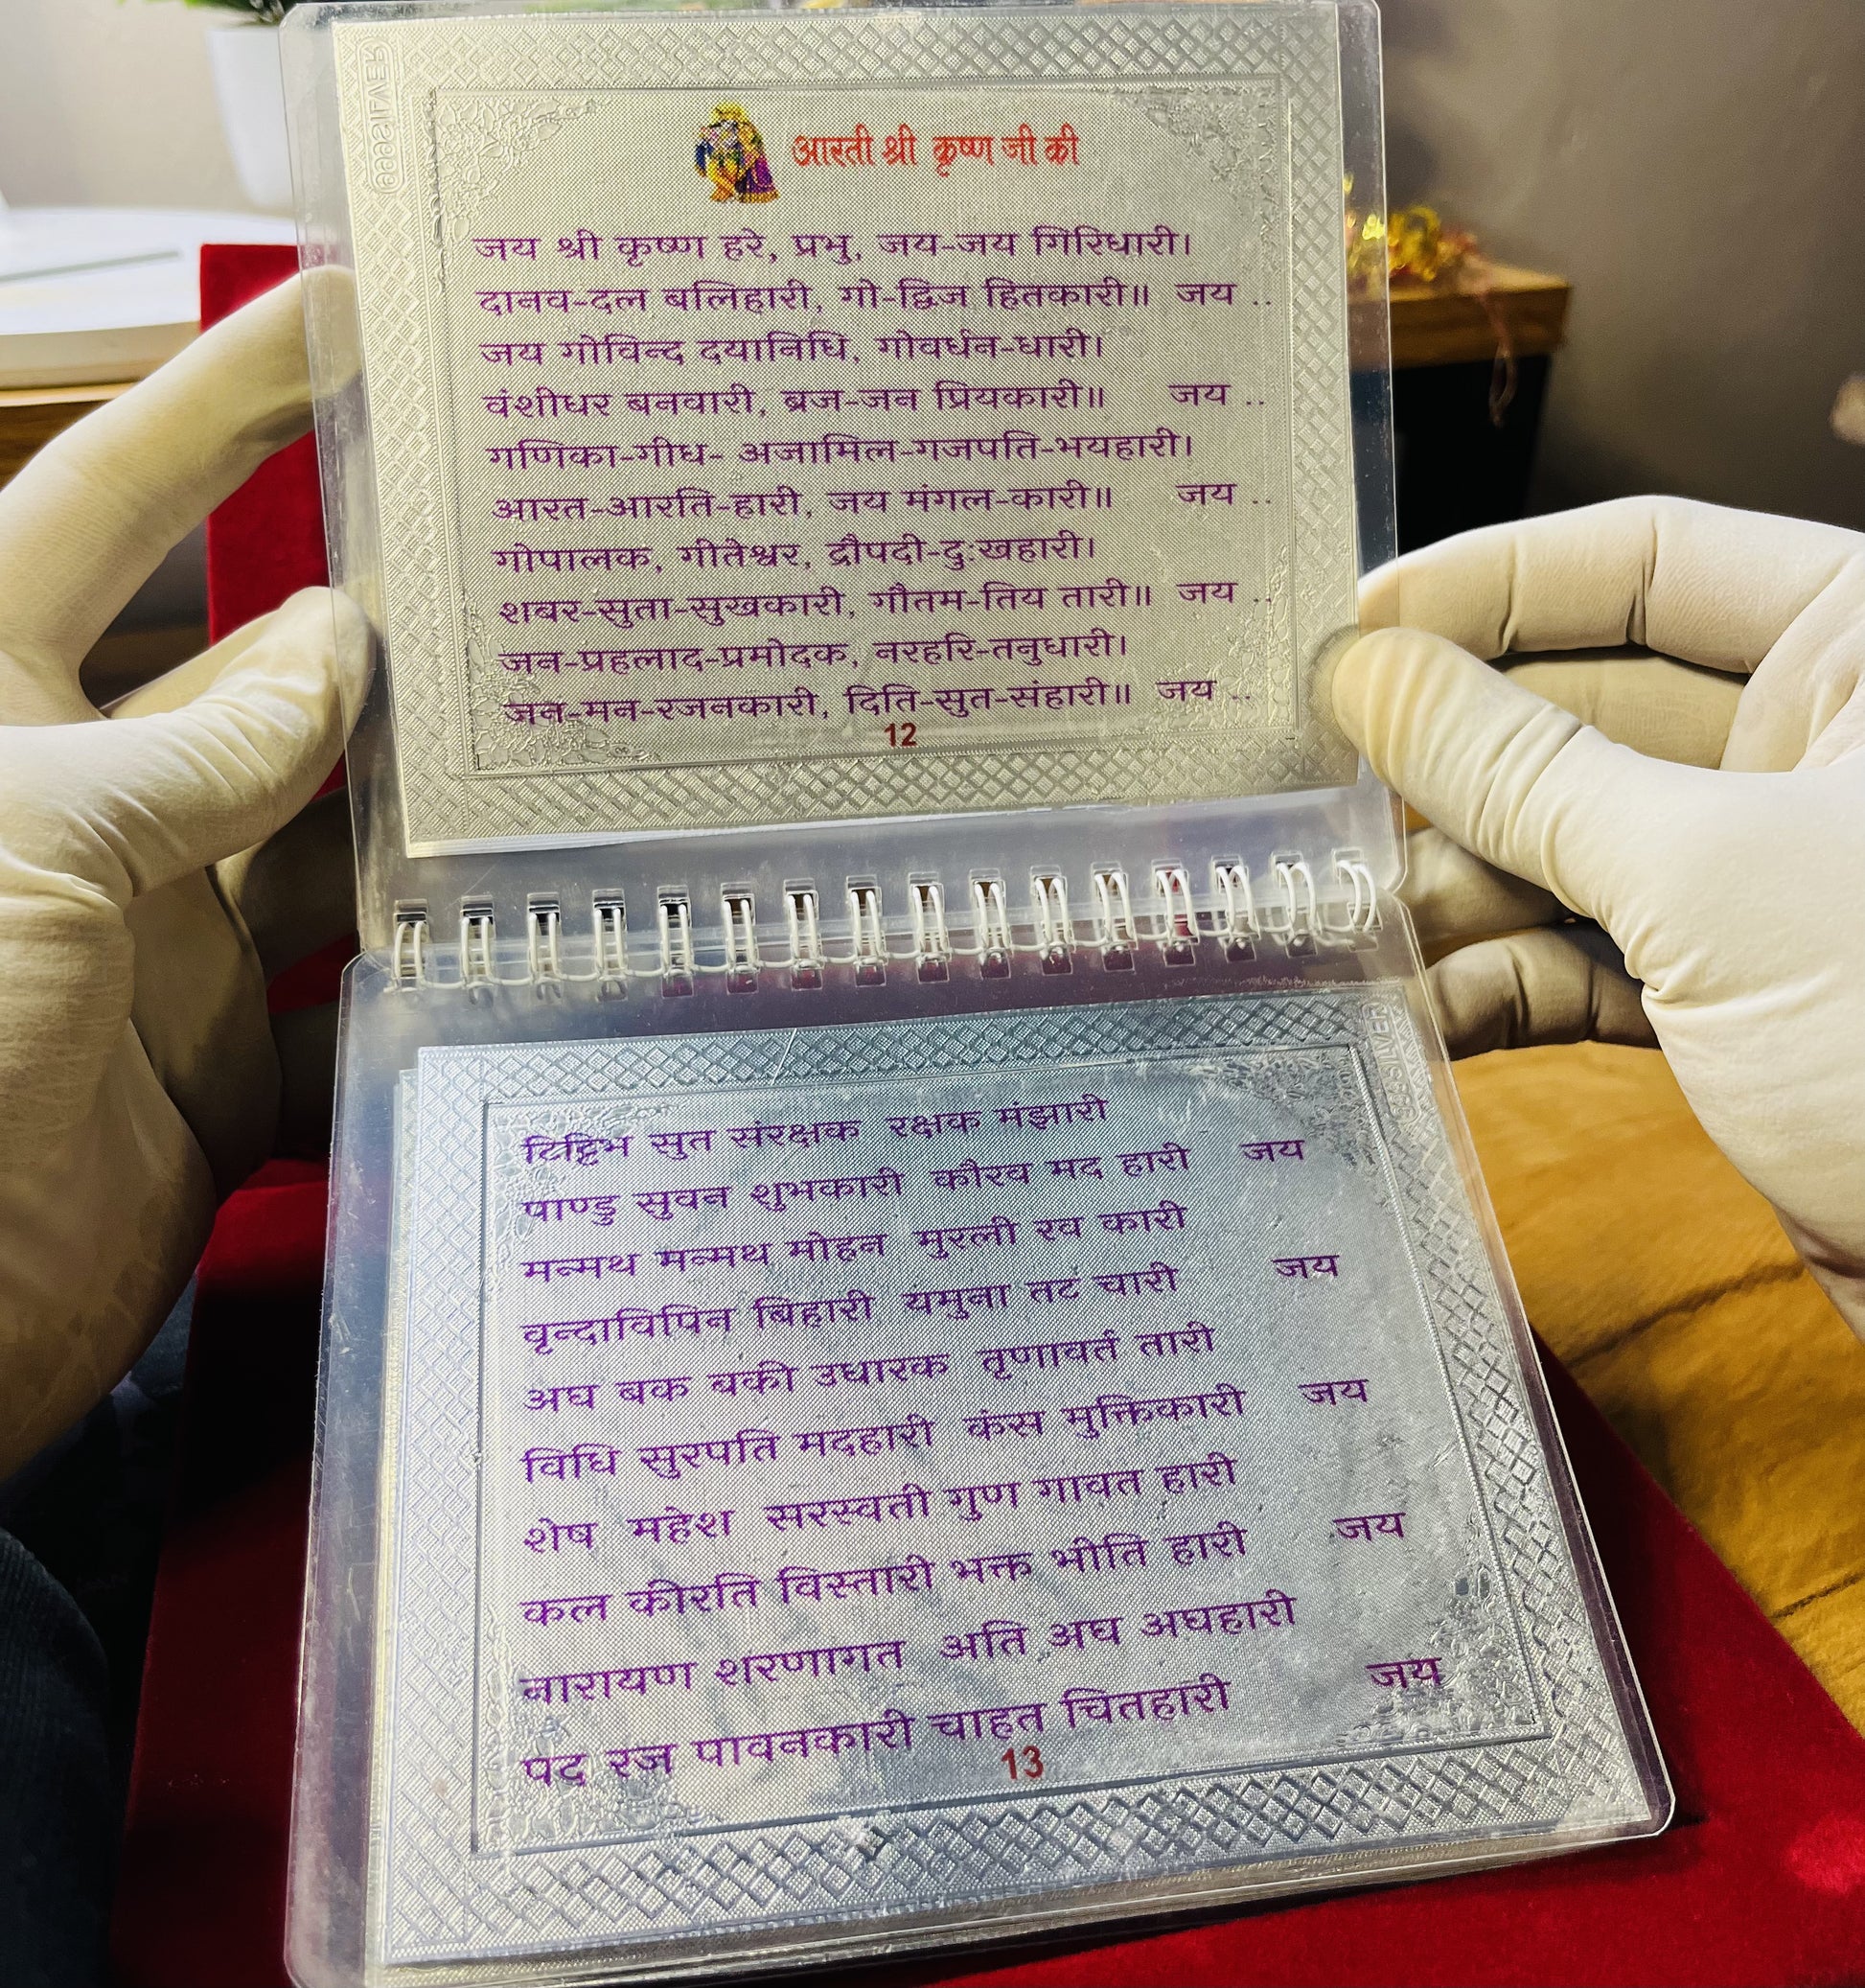 आरती श्री कृष्ण जी की
जय श्री कृष्ण हरे, प्रभु, जय-जय गिरिधारी।
दानव-दल बलिहारी, गो-द्विज हितकारी॥ जय ..
जय गोविन्द दयानिधि, गोवर्धन-धारी।
वंशीधर बनवारी, ब्रज-जन प्रियकारी॥ जय ..
गणिका-गीध- अजामिल-गजपति-भयहारी।
आरत-आरति-हारी, जय मंगल-कारी॥ जय ..
गोपालक, गीतेश्वर, द्रौपदी-दुःखहारी।
शबर-सुता-सुखकारी, गौतम-तिय तारी॥ जय ..
जन-प्रहलाद-प्रमोदक, नरहरि-तनुधारी।
जन-मन-रजनकारी, दिति-सुत-संहारी॥ जय ..
12
999SILVER
टिट्टिभ सुत संरक्षक रक्षक मंझारी
पाण्डु सुवन शुभकारी कौरव मद हारी जय
मन्मथ मन्मथ मोहन मुरली रव कारी
वृन्दाविपिन बिहारी यमुना तट चारी जय
अघ बक बकी उधारक तृणावर्त तारी
विधि सुरपति मदहारी कंस मुक्तिकारी जय
शेष महेश सरस्वती गुण गावत हारी
कल कीरति विस्तारी भक्त भीति हारी जय
नारायण शरणागत अति अघ अघहारी
पद रज पावनकारी चाहत चितहारी जय
13